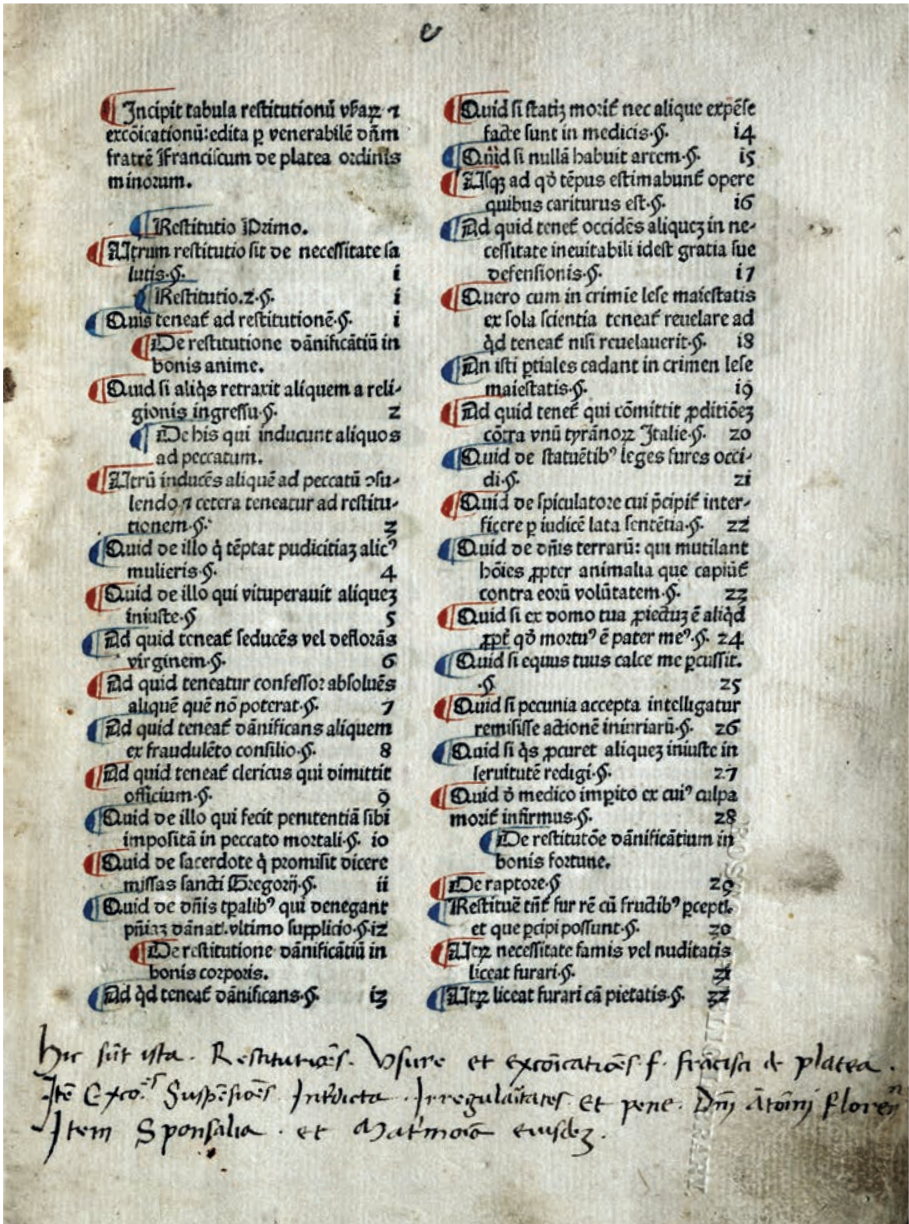 e
Incipit tabula restitutionū vsurarꝝ ⁊
excōicationū: edita ꝑ venerabilē dn̄m
fratrē Franciscum de platea ordinis
minorum.
Restitutio Primo.
Utrum restitutio sit de necessitate sa
lutis.§. i
Restitutio.2.§. i
Quis teneat᷑ ad restitutionē.§. i
De restitutione dānificātiū in
bonis anime.
Quid si aliq̇s retraxit aliquem a reli-
gionis ingressu.§. 2
De his qui inducunt aliquos
ad peccatum.
Utrū inducēs aliquē ad peccatū ꝯsu-
lendo ⁊ cetera teneatur ad restitu-
tionem.§. 3
Quid de illo q̇ tēptat pudicitiaꝫ alicꝰ
mulieris.§. 4
Quid de illo qui vituperauit aliqueꝫ
iniuste.§ 5
Ad quid teneat᷑ seducēs vel deflorās
virginem.§. 6
Ad quid teneatur confessor absoluēs
aliquē quē nō poterat.§. 7
Ad quid teneat᷑ dānificans aliquem
ex fraudulēto consilio.§. 8
Ad quid teneat᷑ clericus qui dimittit
officium.§. 9
Quid de illo qui fecit penitentiā sibi
impositā in peccato mortali.§. io
Quid de sacerdote q̇ promisit dicere
missas sancti Gregorij.§. ii
Quid de dn̄is tꝑalibꝰ qui denegant
pn̄iaꝫ dānat᷑. vltimo supplicio.§.i2
De restitutione dānificātiū in
bonis corporis.
Ad q̇d teneat᷑ dānificans.§. i3
Quid si statiꝫ morit᷑ nec alique expēse
facte sunt in medicis.§. i4
Quid si nullā habuit artem.§. i5
Usqꝫ ad qd̄ tēpus estimabunt᷑ opere
quibus cariturus est.§. i6
Ad quid tenet᷑ occidēs aliqueꝫ in ne-
cessitate ineuitabili idest gratia sue
defensionis.§. i7
Quero cum in crimīe lese maiestatis
ex sola scientia teneat᷑ reuelare ad
q̇d teneat᷑ nisi reuelauerit.§. i8
An isti ꝑtiales cadant in crimen lese
maiestatis.§. i9
Ad quid tenet᷑ qui cōmittit ꝓditiōeꝫ
cōtra vnū tyrānoꝝ Italie.§. 20
Quid de statuētibꝰ leges fures occi-
di.§. 2i
Quid de spiculatore cui p̄cipit᷑ inter-
ficere ꝑ iudicē lata sentētia.§. 22
Quid de dn̄is terrarū: qui mutilant
hōies ꝓpter animalia que capiūt᷑
contra eorū volūtatem.§. 23
Quid si ex domo tua ꝓiectuꝫ ē aliq̇d
ꝓpt᷑ qd̄ mortuꝰ ē pater meꝰ.§. 24
Quid si equus tuus calce me ꝑcussit.
.§ 25
Quid si pecunia accepta intelligatur
remisisse actionē iniuriarū.§. 26
Quid si q̇s ꝓcuret aliqueꝫ iniuste in
seruitutē redigi.§. 27
Quid d̄ medico imꝑito ex cuiꝰ culpa
morit᷑ infirmus.§. 28
De restitutōe dānificātium in
bonis fortune.
De raptore.§ 29
Restituē tn̄t᷑ fur rē cū fructibꝰ ꝑcept᷑.
et que ꝑcipi possunt.§. 30
Utꝝ necessitate famis vel nuditatis
liceat furari.§. 31
Utꝝ liceat furari cā pietatis.§. 32
Hic sūt ista. Restitutiōes. Vsure et excōicatiōes f. frācisci de platea.
Itē Exco.es Suspēsiōes. Int᷑dicta. Irregulāitates et pene. Dn̄i Ātoīnj Floren
Item Sponsalia. et Mat᷑moīa eiusdeꝫ.